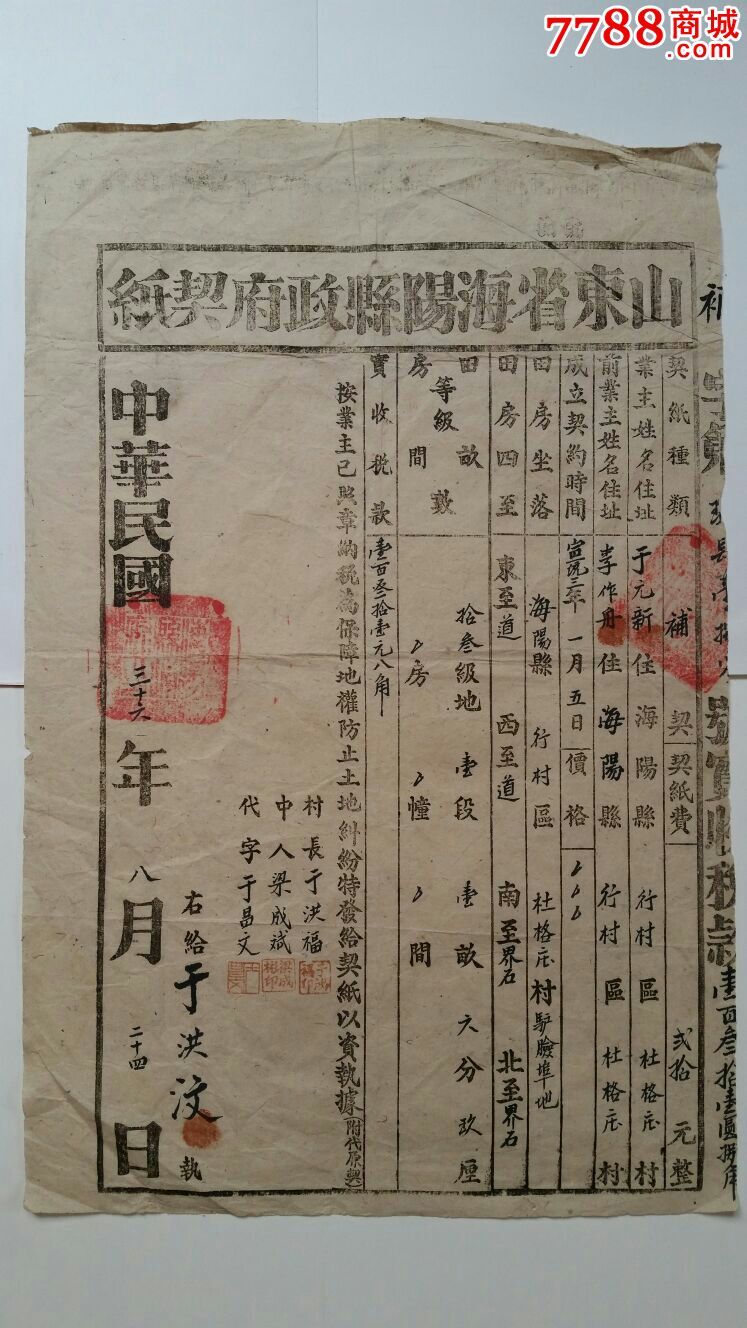 7788商城
.com
山東省海陽縣政府契紙
補
字第
號實收稅款壹百叁拾壹圓捌角
契紙種類 補契 契紙費 弍拾元整
業主姓名住址 于元新住海陽縣行村區杜格庄村
前業主姓名住址 李作丹住海陽縣行村區杜格庄村
成立契約時間 宣統三年一月五日 價格
田房坐落 海陽縣行村區杜格庄村驴臉埠地
田房四至 東至道 西至道 南至界石 北至界石
田 等級 畝數 拾叁級地壹段壹畝六分玖厘
房間 房 幢 間
實收稅款 壹百叁拾壹元八角
按業主已照章納稅為保障地權防止土地糾紛特發給契紙以資執據(附代原契)
村長于洪福
中人梁成斌
代字于昌文
右給于洪汶執
中華民國三十六年八月二十四日